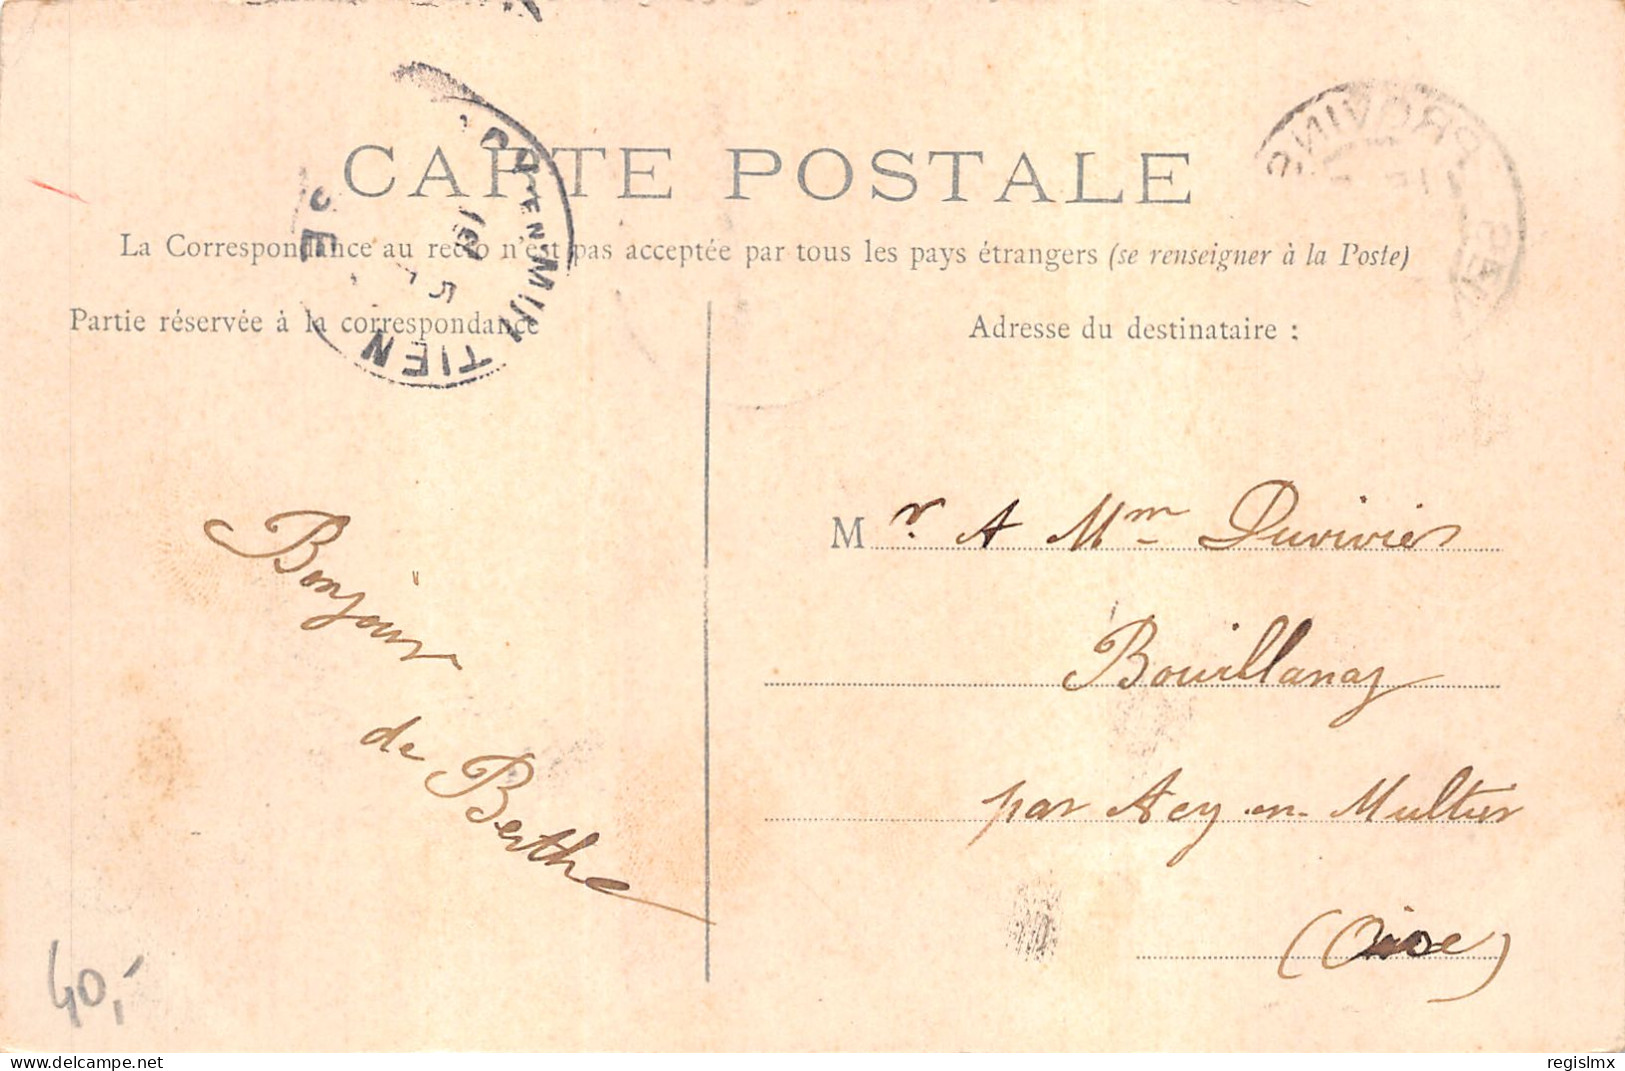 CARTE POSTALE
La Correspondance au recto n'est pas acceptée par tous les pays étrangers (se renseigner à la Poste)
Partie réservée à la correspondance
Adresse du destinataire :
Bonjour
de Berthe
M r. A Mm Duvivier
Bouillancy
par Acy-en-Multien
(Oise)
PROVINS
EN MUL TIEN
OISE
40,-
www.delcampe.net
regislmx